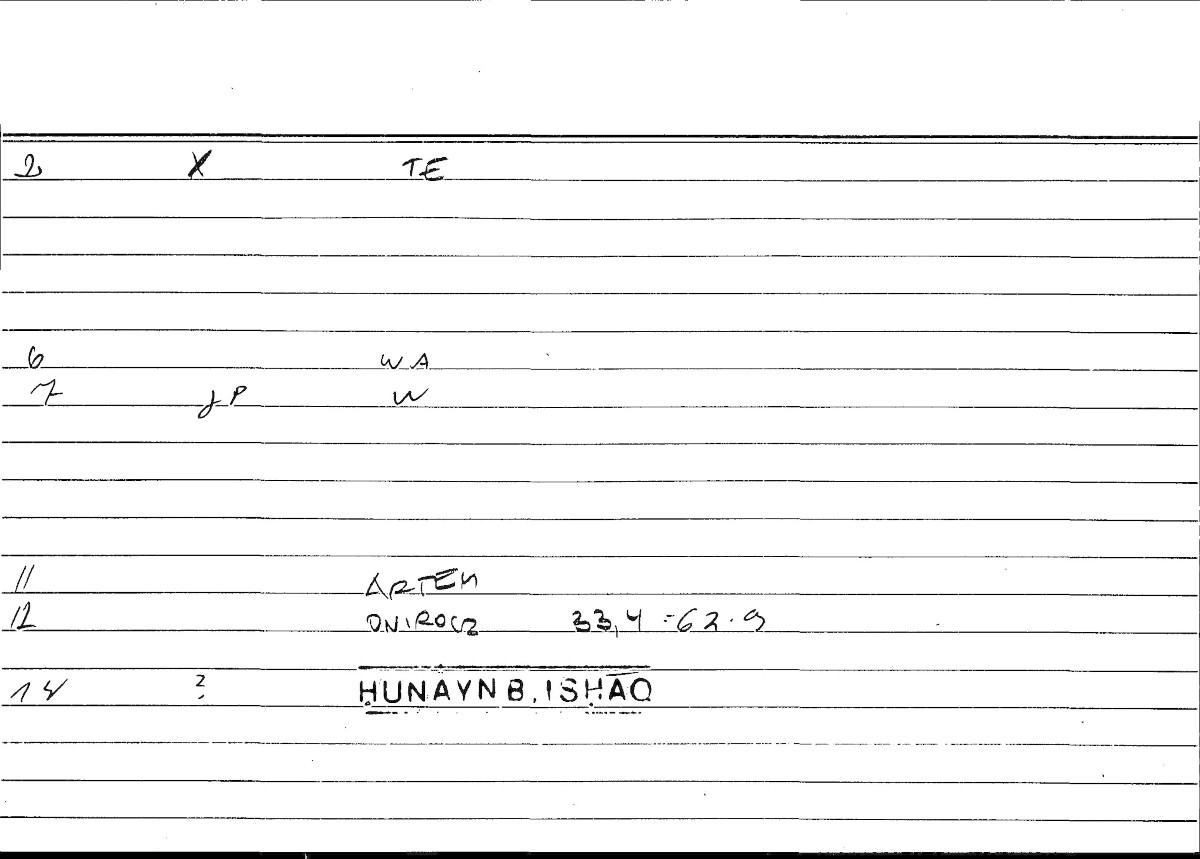 2 X TE
6 WA
7 JP W
11 ARTEM
12 ONIROCR 33,4 = 62.9
14 ? ḤUNAYN B. ISḤĀQ